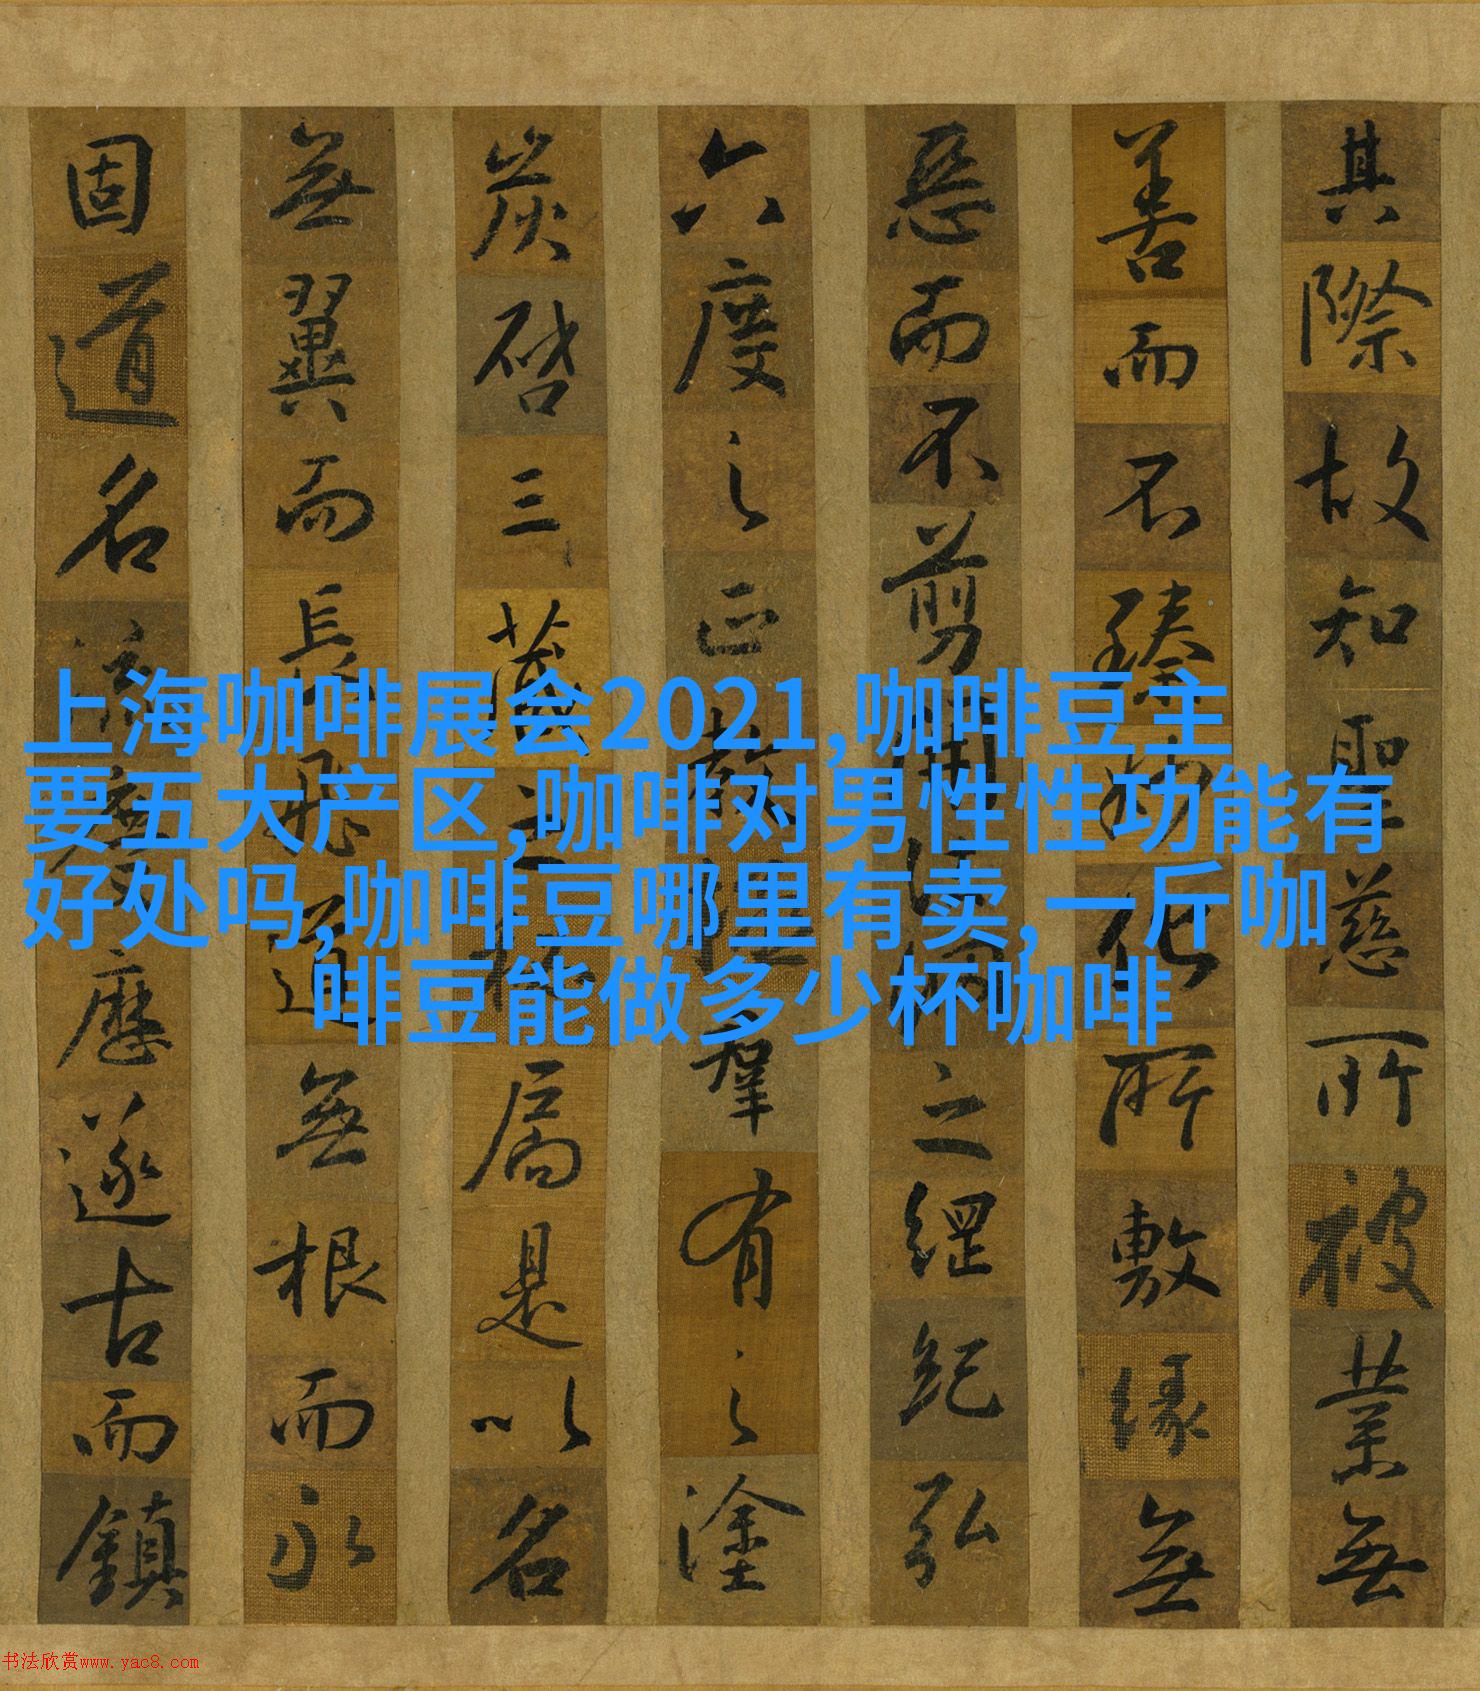 上海咖啡展会2021,咖啡豆主
要五大产区,咖啡对男性性功能有
好处吗,咖啡豆哪里有卖,一斤咖
啡豆能做多少杯咖啡
其際故知聖慈所被業無
善而不臻妙化所敷緣無
惡而不翦開法網之綱紀弘
六度之正教拯羣有之塗
炭啓三藏之秘扃是以名
無翼而長飛道無根而永
固道名流慶歷遂古而鎮
书法欣赏www.yac8.com